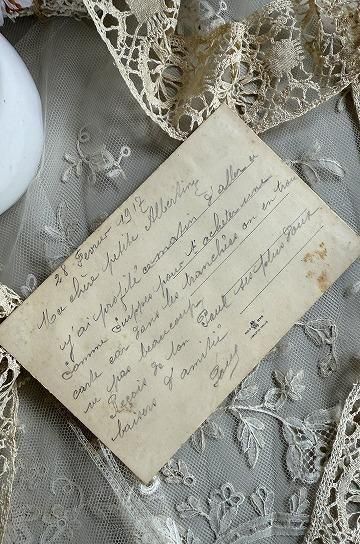 28 Fevrier 1917
Ma chère petite Albertine
j'ai profité ce matin d'aller a
comme pour t'acheter une
carte car dans les tranchées on en trou
ve pas beaucoup
Reçois de ton Paul ses plus doux
baisers d'amitié